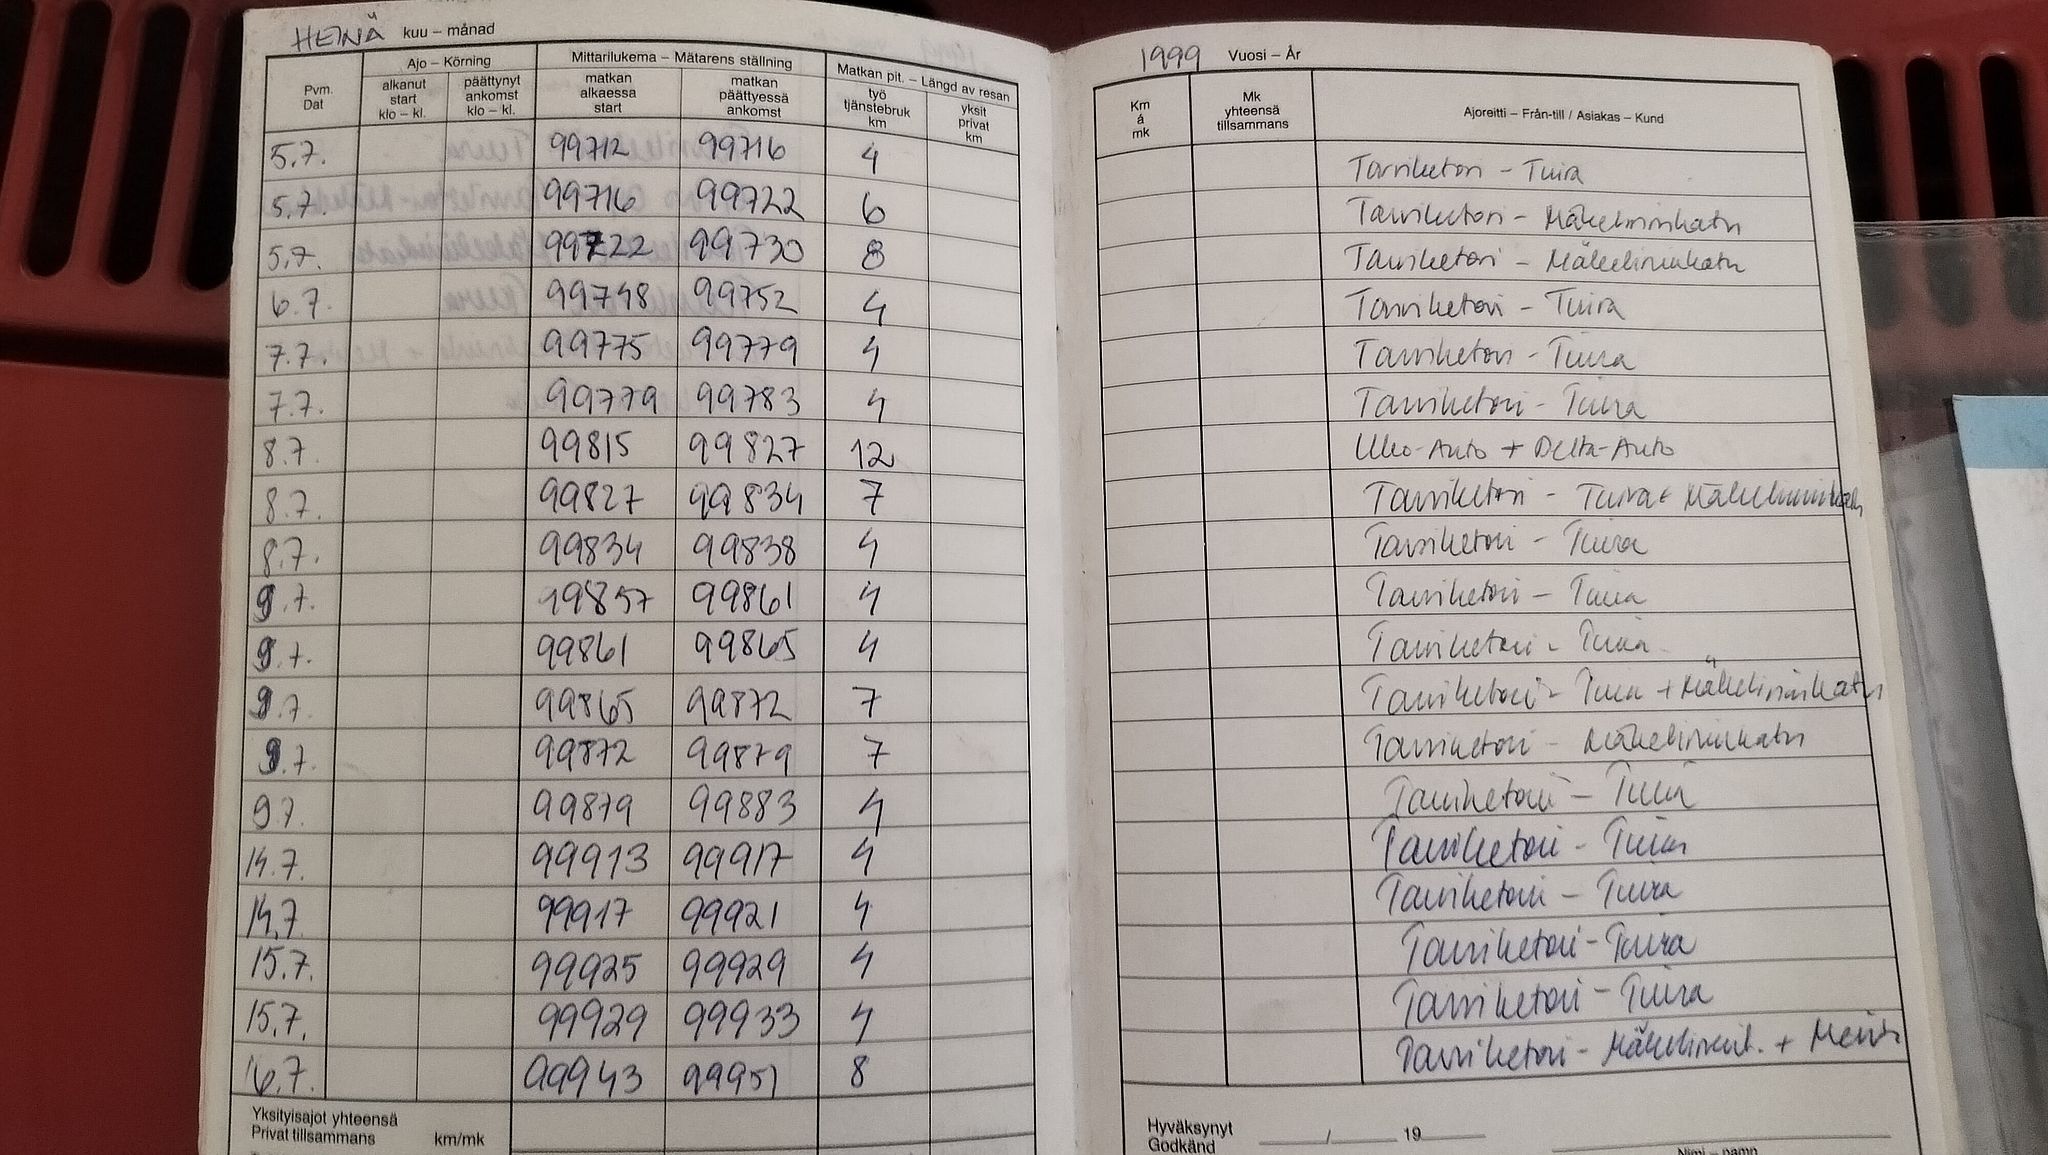 HEINÄ kuu – månad
Pvm.
Dat
Ajo – Körning
alkanut
start
klo – kl.
päättynyt
ankomst
klo – kl.
Mittarilukema – Mätarens ställning
matkan
alkaessa
start
matkan
päättyessä
ankomst
Matkan pit. – Längd av resan
työ
tjänstebruk
km
yksit
privat
km
1999 Vuosi – År
Km
á
mk
Mk
yhteensä
tillsammans
Ajoreitti – Från-till / Asiakas – Kund
5.7. 99712 99716 4 Tarviketori – Tuira
5.7. 99716 99722 6 Tarviketori – Mäkelininkatu
5.7. 99722 99730 8 Tarviketori – Mäkelininkatu
6.7. 99748 99752 4 Tarviketori – Tuira
7.7. 99775 99779 4 Tarviketori – Tuira
7.7. 99779 99783 4 Tarviketori – Tuira
8.7. 99815 99827 12 -Auto + Delta-Auto
8.7. 99827 99834 7 Tarviketori – Tuira + Mäkelininkatu
8.7. 99834 99838 4 Tarviketori – Tuira
9.7. 99857 99861 4 Tarviketori – Tuira
9.7. 99861 99865 4 Tarviketori – Tuira
9.7. 99865 99872 7 Tarviketori – Tuira + Mäkelininkatu
9.7. 99872 99879 7 Tarviketori – Mäkelininkatu
9.7. 99879 99883 4 Tarviketori – Tuira
14.7. 99913 99917 4 Tarviketori – Tuira
14.7. 99917 99921 4 Tarviketori – Tuira
15.7. 99925 99929 4 Tarviketori – Tuira
15.7. 99929 99933 4 Tarviketori – Tuira
16.7. 99943 99951 8 Tarviketori – Mäkelinink. +
Yksityisajot yhteensä
Privat tillsammans km/mk
Hyväksynyt
Godkänd / 19
Nimi – namn